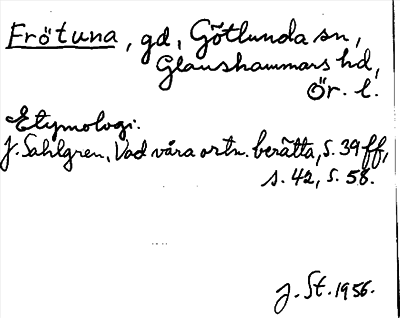 Frötuna, gd, Götlunda sn,
Glanshammars hd,
Ör. l.
Etymologi:
J. Sahlgren, Vad våra ortn. berätta, s. 39 ff,
s. 42, s. 58.
J. St. 1956.